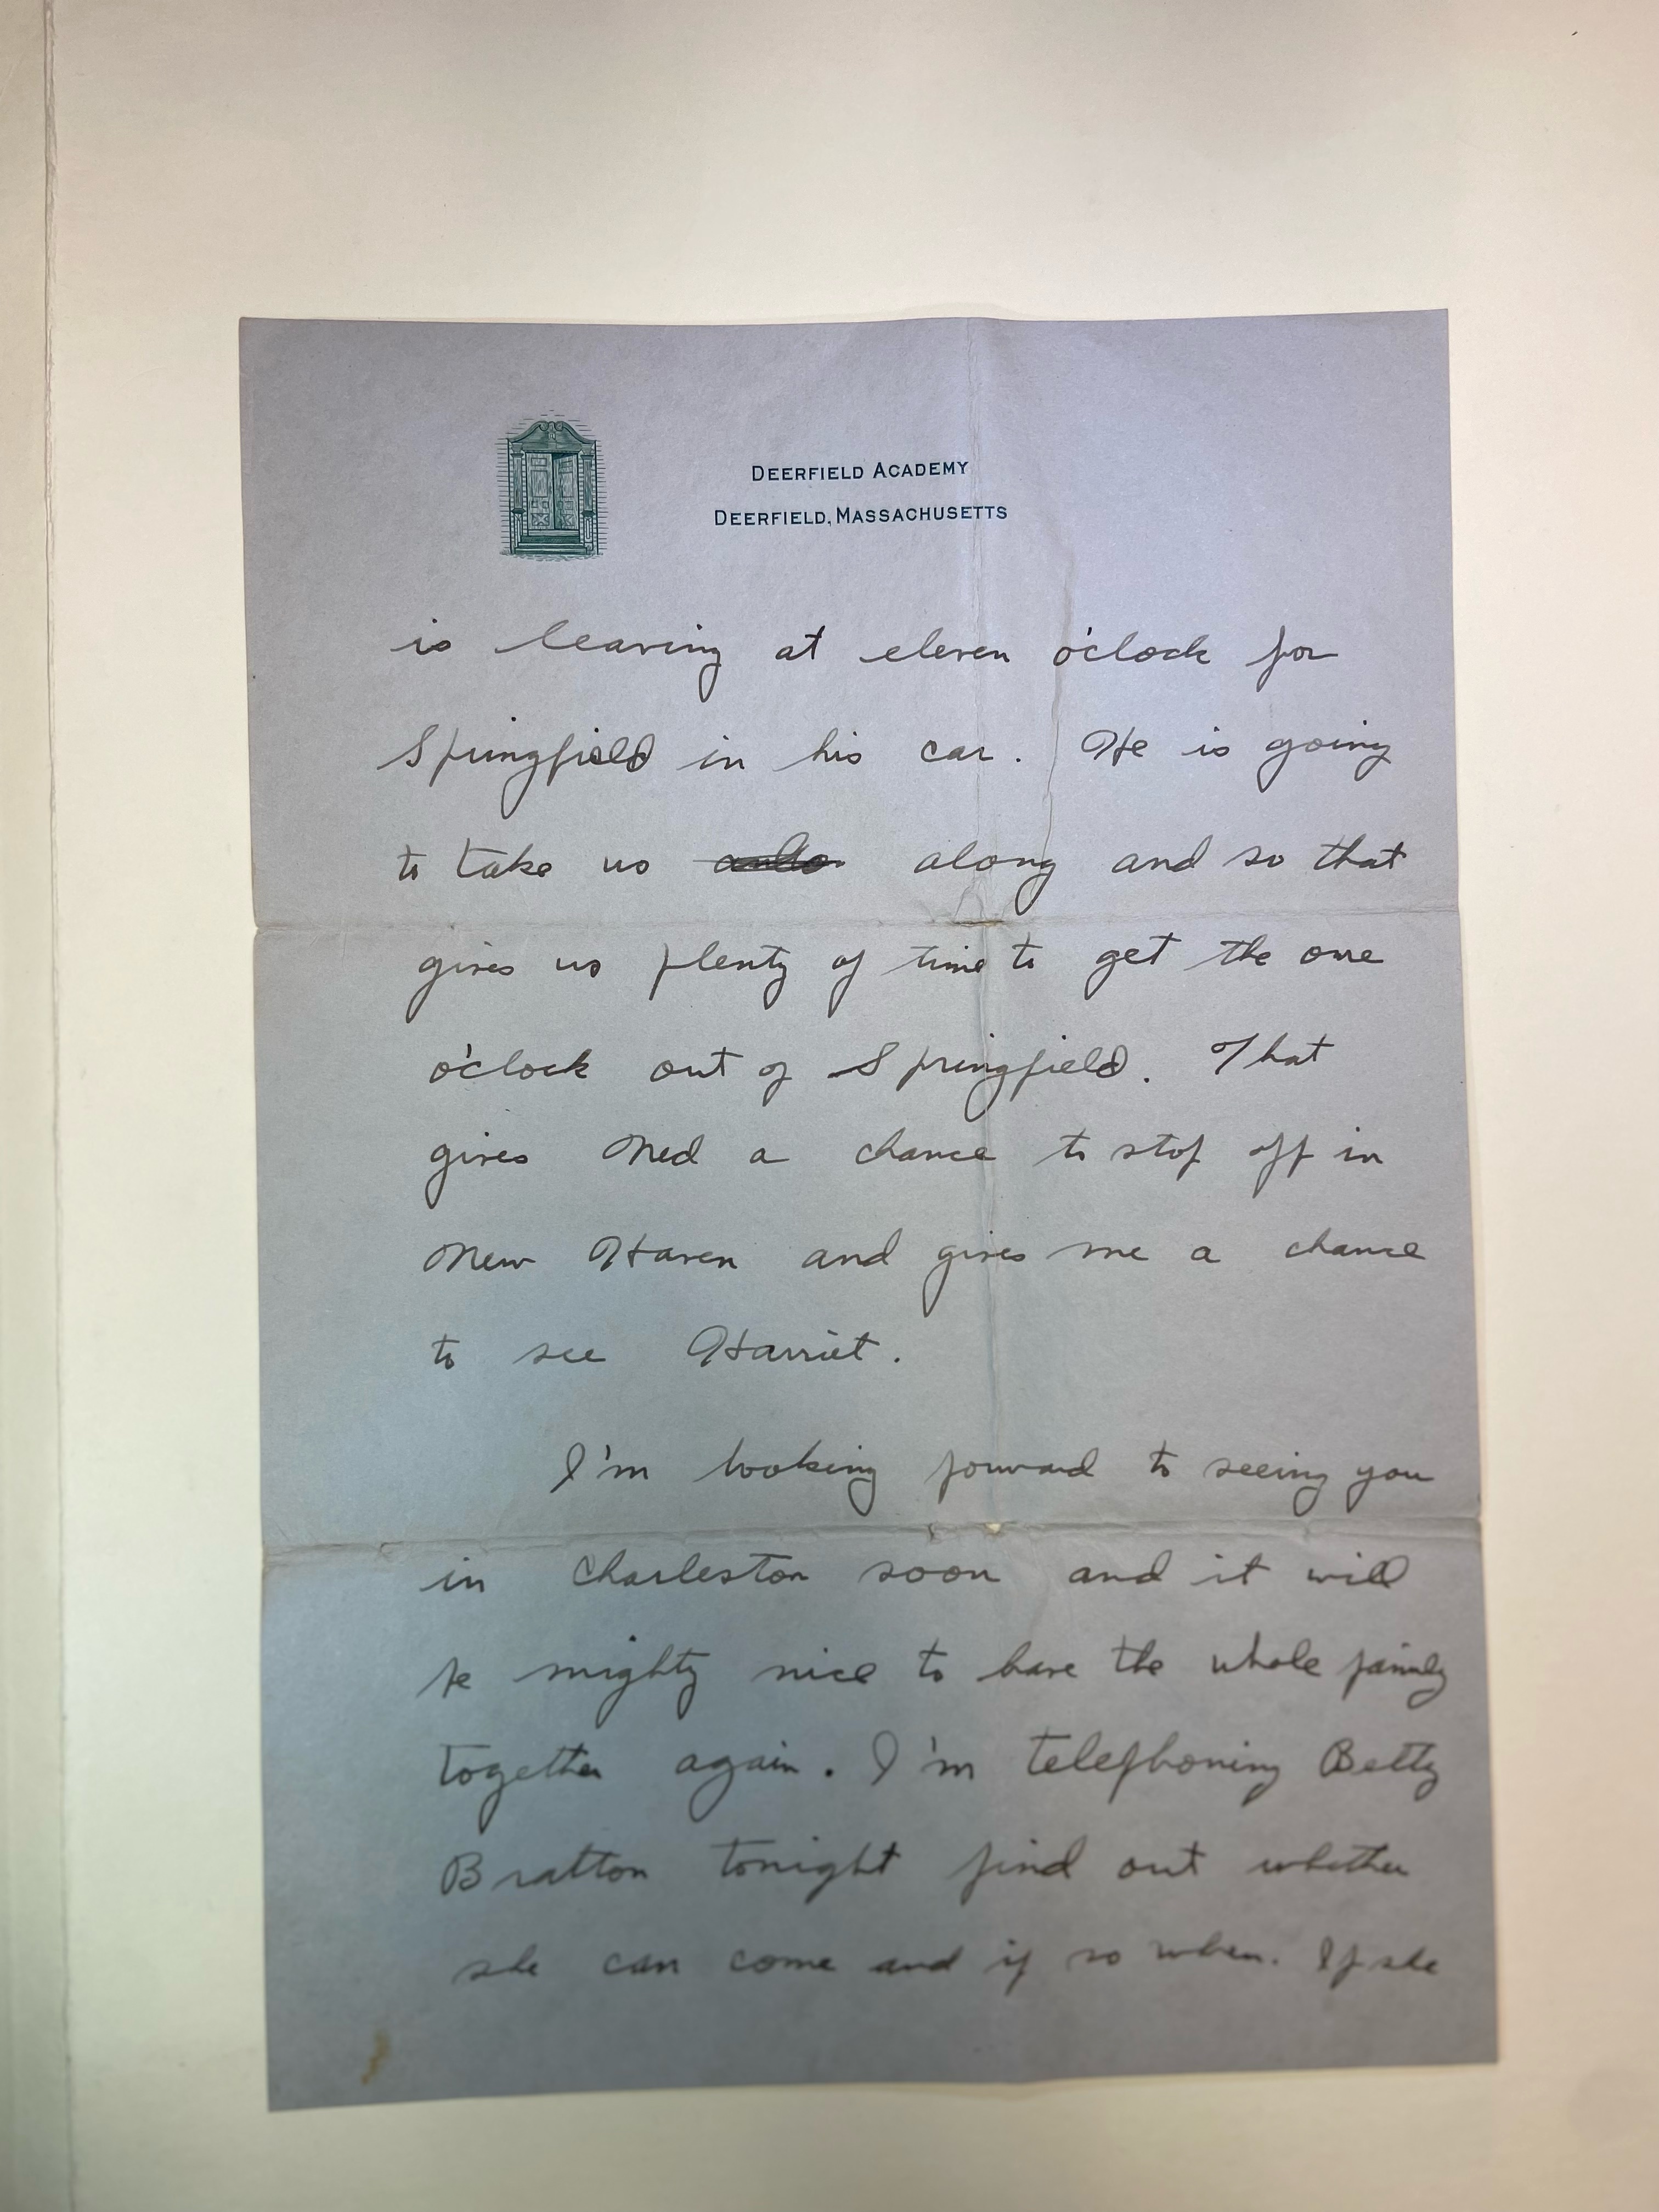 DEERFIELD ACADEMY
DEERFIELD, MASSACHUSETTS
is leaving at eleven o'clock for
Springfield in his car. He is going
to take us along and so that
gives us plenty of time to get the one
o'clock out of Springfield. That
gives Ned a chance to stop off in
New Haven and gives me a chance
to see Harriet.
I'm looking forward to seeing you
in Charleston soon and it will
be mighty nice to have the whole family
together again. I'm telephoning Betty
Bratton tonight find out whether
she can come and if so when. If she